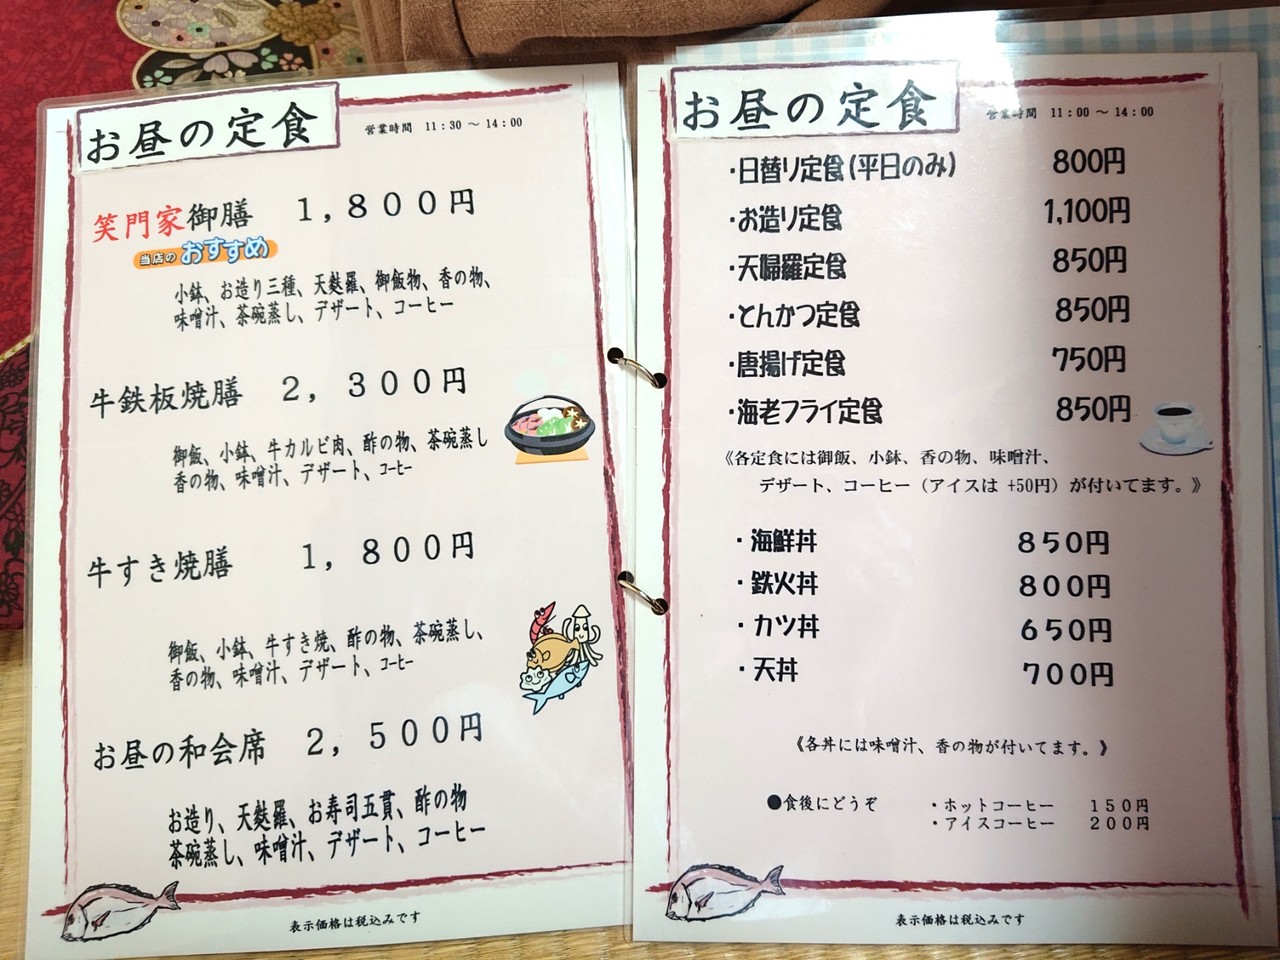 お昼の定食
営業時間 11：30 ～ 14：00
笑門家御膳 １，８００円
当店のおすすめ
小鉢、お造り三種、天麩羅、御飯物、香の物、
味噌汁、茶碗蒸し、デザート、コーヒー
牛鉄板焼膳 ２，３００円
御飯、小鉢、牛カルビ肉、酢の物、茶碗蒸し
香の物、味噌汁、デザート、コーヒー
牛すき焼膳 １，８００円
御飯、小鉢、牛すき焼、酢の物、茶碗蒸し、
香の物、味噌汁、デザート、コーヒー
お昼の和会席 ２，５００円
お造り、天麩羅、お寿司五貫、酢の物
茶碗蒸し、味噌汁、デザート、コーヒー
表示価格は税込みです
お昼の定食
営業時間 11：00 ～ 14：00
・日替り定食(平日のみ) 800円
・お造り定食 1,100円
・天婦羅定食 850円
・とんかつ定食 850円
・唐揚げ定食 750円
・海老フライ定食 850円
《各定食には御飯、小鉢、香の物、味噌汁、
デザート、コーヒー（アイスは +50円）が付いてます。》
・海鮮丼 ８５０円
・鉄火丼 ８００円
・カツ丼 ６５０円
・天丼 ７００円
《各丼には味噌汁、香の物が付いてます。》
●食後にどうぞ ・ホットコーヒー １５０円
・アイスコーヒー ２００円
表示価格は税込みです